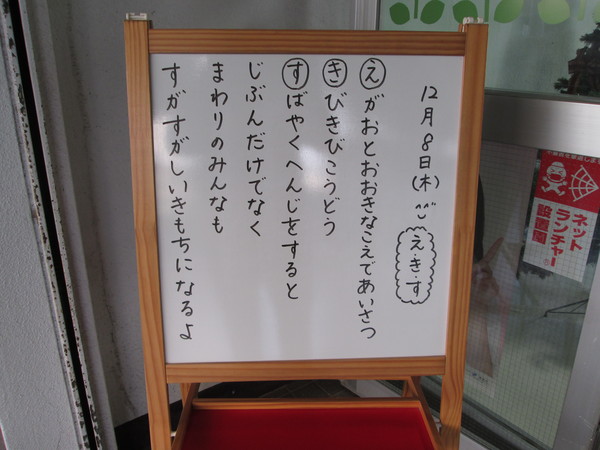 12月8日(木)
え・き・す
えがおとおおきなこえであいさつ
きびきびこうどう
すばやくへんじをすると
じぶんだけでなく
まわりのみんなも
すがすがしいきもちになるよ
ネット
ランチャー
設置園